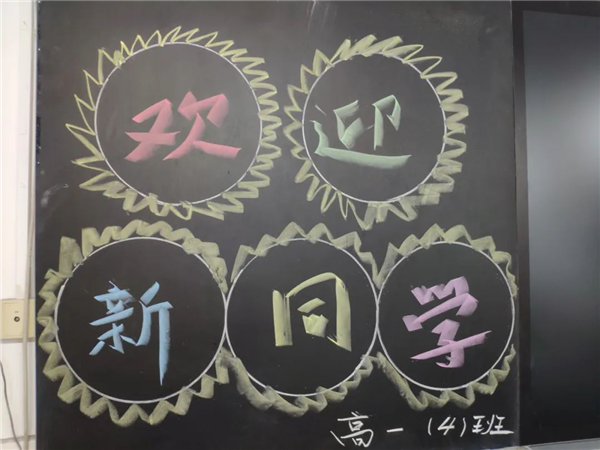 欢迎
新同学
高一(4)班